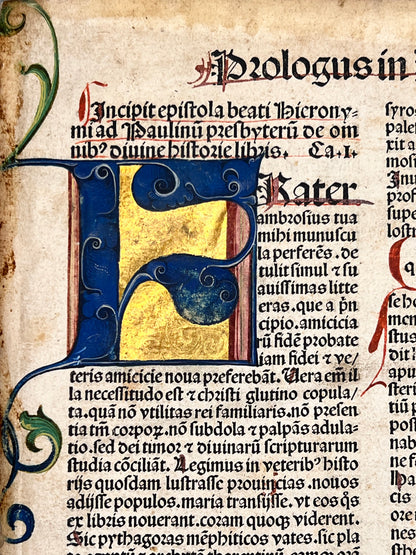 Prologus in
Incipit epistola beati Hierony-
mi ad Paulinū presbyterū de om
nibꝰ divine historie libris. Ca.I.
FRater
ambrosius tua
mihi munuscu
la perferēs. de
tulit simul ⁊ su
auissimas litte
ras. que a p̄n
cipio. amicicia
rū fidē probate
iam fidei ⁊ ve/
teris amicicie noua preferebāt. Uera em̄ il
la necessitudo est ⁊ christi glutino copula/
ta. quā nō vtilitas rei familiaris. nō presen
tia tm̄ corpoꝝ. nō subdola ⁊ palpās adula-
tio. sed dei timor ⁊ diuinarū scripturarum
studia cōciliāt. Legimus in veteribꝰ histo
rijs quosdam lustrasse prouincias. nouos
adijsse populos. maria transijsse. vt eos qs
ex libris nouerant. coram quoqꝫ viderent.
Sic pythagoras mēphiticos vates. sic pla
syro
pale
xit a
mos
Inu
prof
supe
lost
q
se ho
men
stus
dit
apu
ster
tiū
post
nun
tū
ras
cis